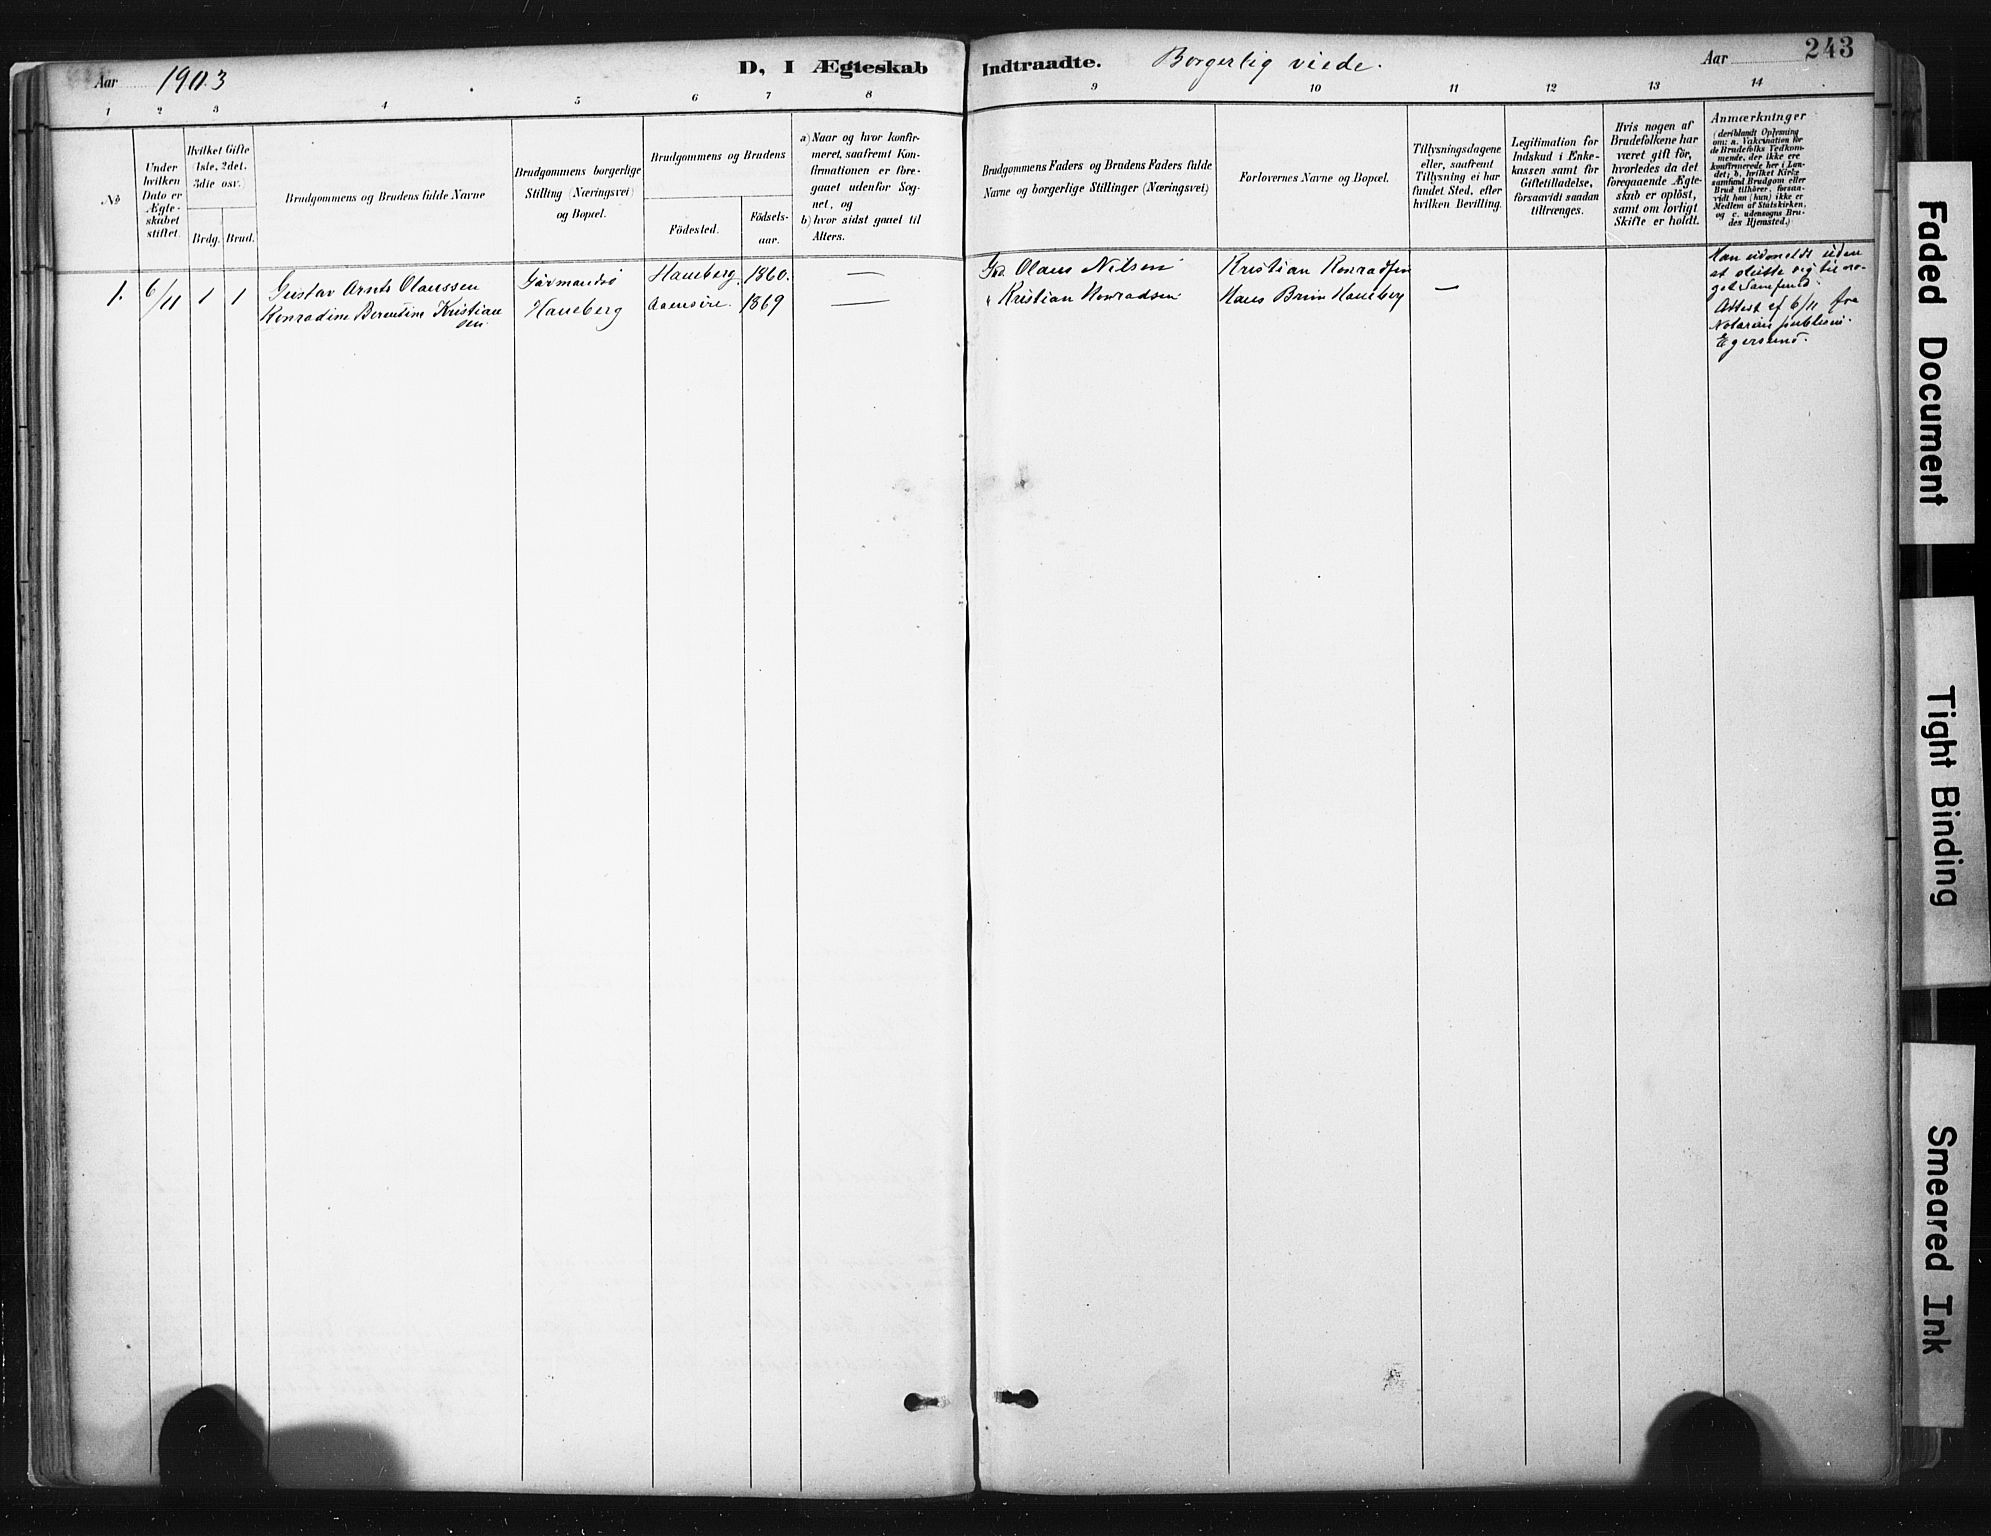 Aar 1903
D, I Ægteskab Indtraadte. Borgerlig viede.
Aar
243
1 2 3 4 5 6 7 8 9 10 11 12 13 14
No
Under
hvilken
Dato er
Ægte-
skabet
stiftet.
Hvilket Gifte
(1ste, 2det,
3die osv.)
Brdg. Brud.
Brudgommens og Brudens fulde Navne
Brudgommens borgerlige
Stilling (Næringsvei)
og Bopæl.
Brudgommens og Brudens
Födested.
Födsels-
aar.
a) Naar og hvor konfir-
meret, saafremt Kon-
firmationen er fore-
gaaet udenfor Sog-
net, og
b) hvor sidst gaaet til
Alters.
Brudgommens Faders og Brudens Faders fulde
Navne og borgerlige Stillinger (Næringsvei)
Forlovernes Navne og Bopæl.
Tillysningsdagene
eller, saafremt
Tillysning ei har
fundet Sted, efter
hvilken Bevilling.
Legitimation for
Indskud i Enke-
kassen samt for
Giftetilladelse,
forsaavidt saadan
tiltrænges.
Hvis nogen af
Brudefolkene har
været gift för,
hvorledes da det
foregaaende Ægte-
skab er oplöst,
samt om lovligt
Skifte er holdt.
Anmærkninger
(deriblandt Oplysning
om: a. Vakcination for
de Brudefolks Vedkom-
mende, der ikke ere
konfirmerede her i Lan-
det; b. hvilket Kirke-
samfund Brudgom eller
Brud tilhörer, forsaa-
vidt han (hun) ikke er
Medlem af Statskirken,
og c. udensogns Bru-
des Hjemsted.)
1. 6/11 1 1
Gustav Arnts Olaussen
Konradine Berentine Kristian
sen.
Haneberg
Haneberg. 1860. —
1869 —
Olaus Nilsen
" Kristian Konradsen
Kristian Konradsen
Hans Brun Haneberg
—
Han udmeldt uden
at slutte sig til no-
get Samfund.
Attest af 6/11 fra
Notarius publicus
Egersund.
Faded Document
Tight Binding
Smeared Ink